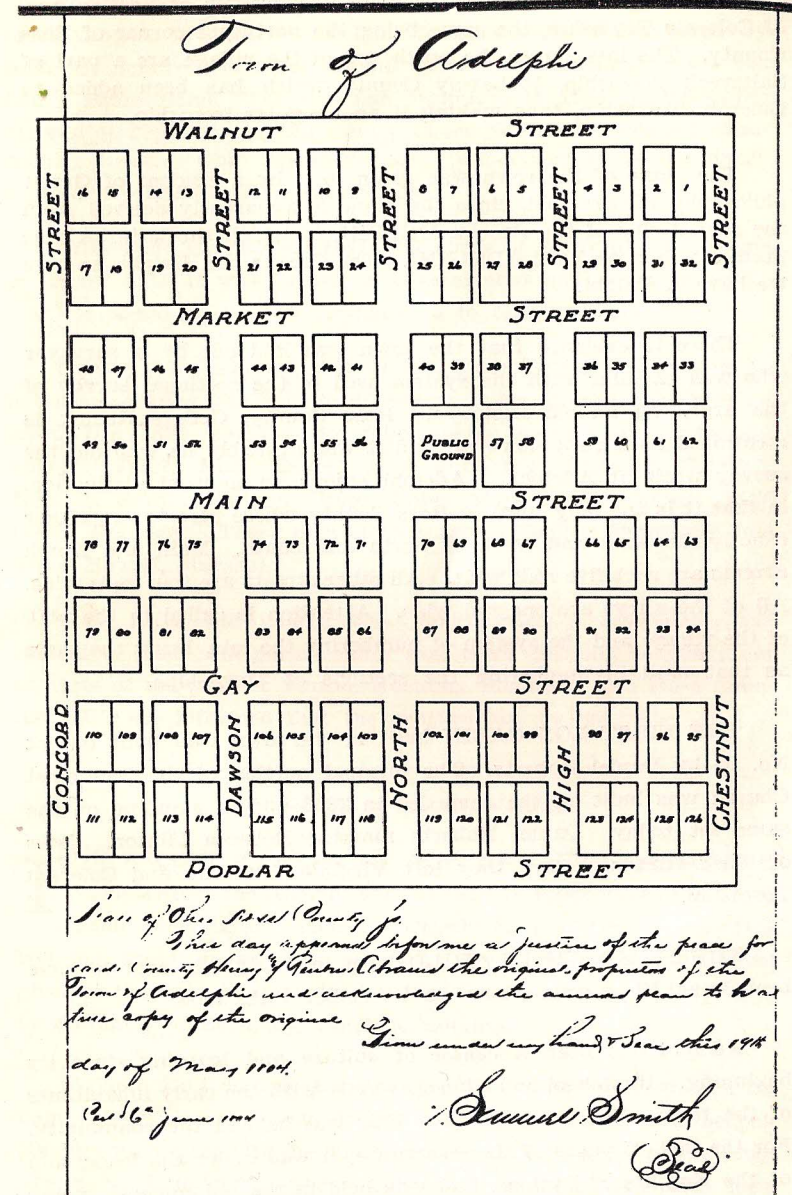 Town of Adelphi
WALNUT STREET
STREET STREET STREET STREET STREET
16 15 14 13 12 11 10 9 8 7 6 5 4 3 2 1
17 18 19 20 21 22 23 24 25 26 27 28 29 30 31 32
MARKET STREET
48 47 46 45 44 43 42 41 40 39 38 37 36 35 34 33
49 50 51 52 53 54 55 56 PUBLIC GROUND 57 58 59 60 61 62
MAIN STREET
78 77 76 75 74 73 72 71 70 69 68 67 66 65 64 63
79 80 81 82 83 84 85 86 87 88 89 90 91 92 93 94
GAY STREET
CONCORD DAWSON NORTH HIGH CHESTNUT
110 109 108 107 106 105 104 103 102 101 100 99 98 97 96 95
111 112 113 114 115 116 117 118 119 120 121 122 123 124 125 126
POPLAR STREET
State of Ohio Ross County
This day appeared before me a Justice of the peace for
said County Henry & Reuben Abrams the original proprietors of the
Town of Adelphi and acknowledged the annexed plan to be a
true copy of the original
Given under my hand & Seal this 19th
day of May 1804.
6th June 1804
Samuel Smith
Seal